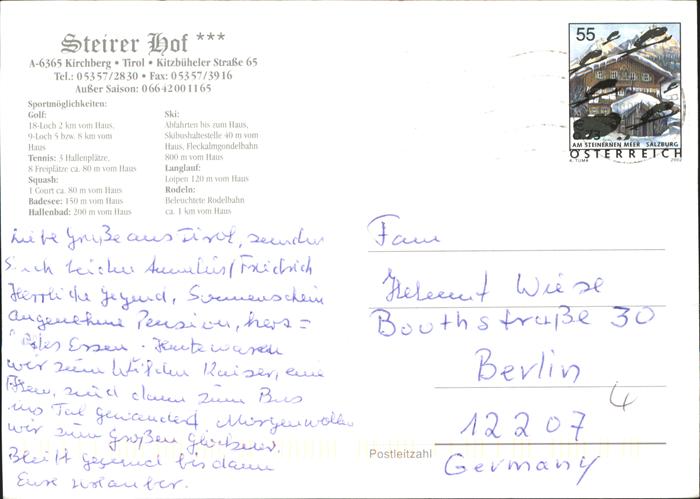 Steirer Hof ***
A-6365 Kirchberg • Tirol • Kitzbüheler Straße 65
Tel.: 05357/2830 • Fax: 05357/3916
Außer Saison: 06642001165
Sportmöglichkeiten:
Golf:
18-Loch 2 km vom Haus,
9-Loch 5 bzw. 8 km vom
Haus
Tennis: 3 Hallenplätze,
8 Freiplätze ca. 80 m vom Haus
Squash:
1 Court ca. 80 m vom Haus
Badesee: 150 m vom Haus
Hallenbad: 200 m vom Haus
Ski:
Abfahrten bis zum Haus,
Skibushaltestelle 40 m vom
Haus, Fleckalmgondelbahn
800 m vom Haus
Langlauf:
Loipen 120 m vom Haus
Rodeln:
Beleuchtete Rodelbahn
ca. 1 km vom Haus
55
AM STEINERNEN MEER SALZBURG
ÖSTERREICH
2002
Liebe Grüße aus Tirol, senden
Euch beiden Annelies/Friedrich
Herrliche Gegend, Sonnenschein
angenehme Pension, herz=
Essen. Heute waren
wir zum Wilden Kaiser, eine
sind dann zum Bus
ins Tal gewandert. Morgen wollen
wir zum Großen Glockner.
Bleibt gesund bis dann
Eure Urlauber.
Fam
Helmut Wiese
Boothstraße 30
Berlin
4
12207
Postleitzahl
Germany